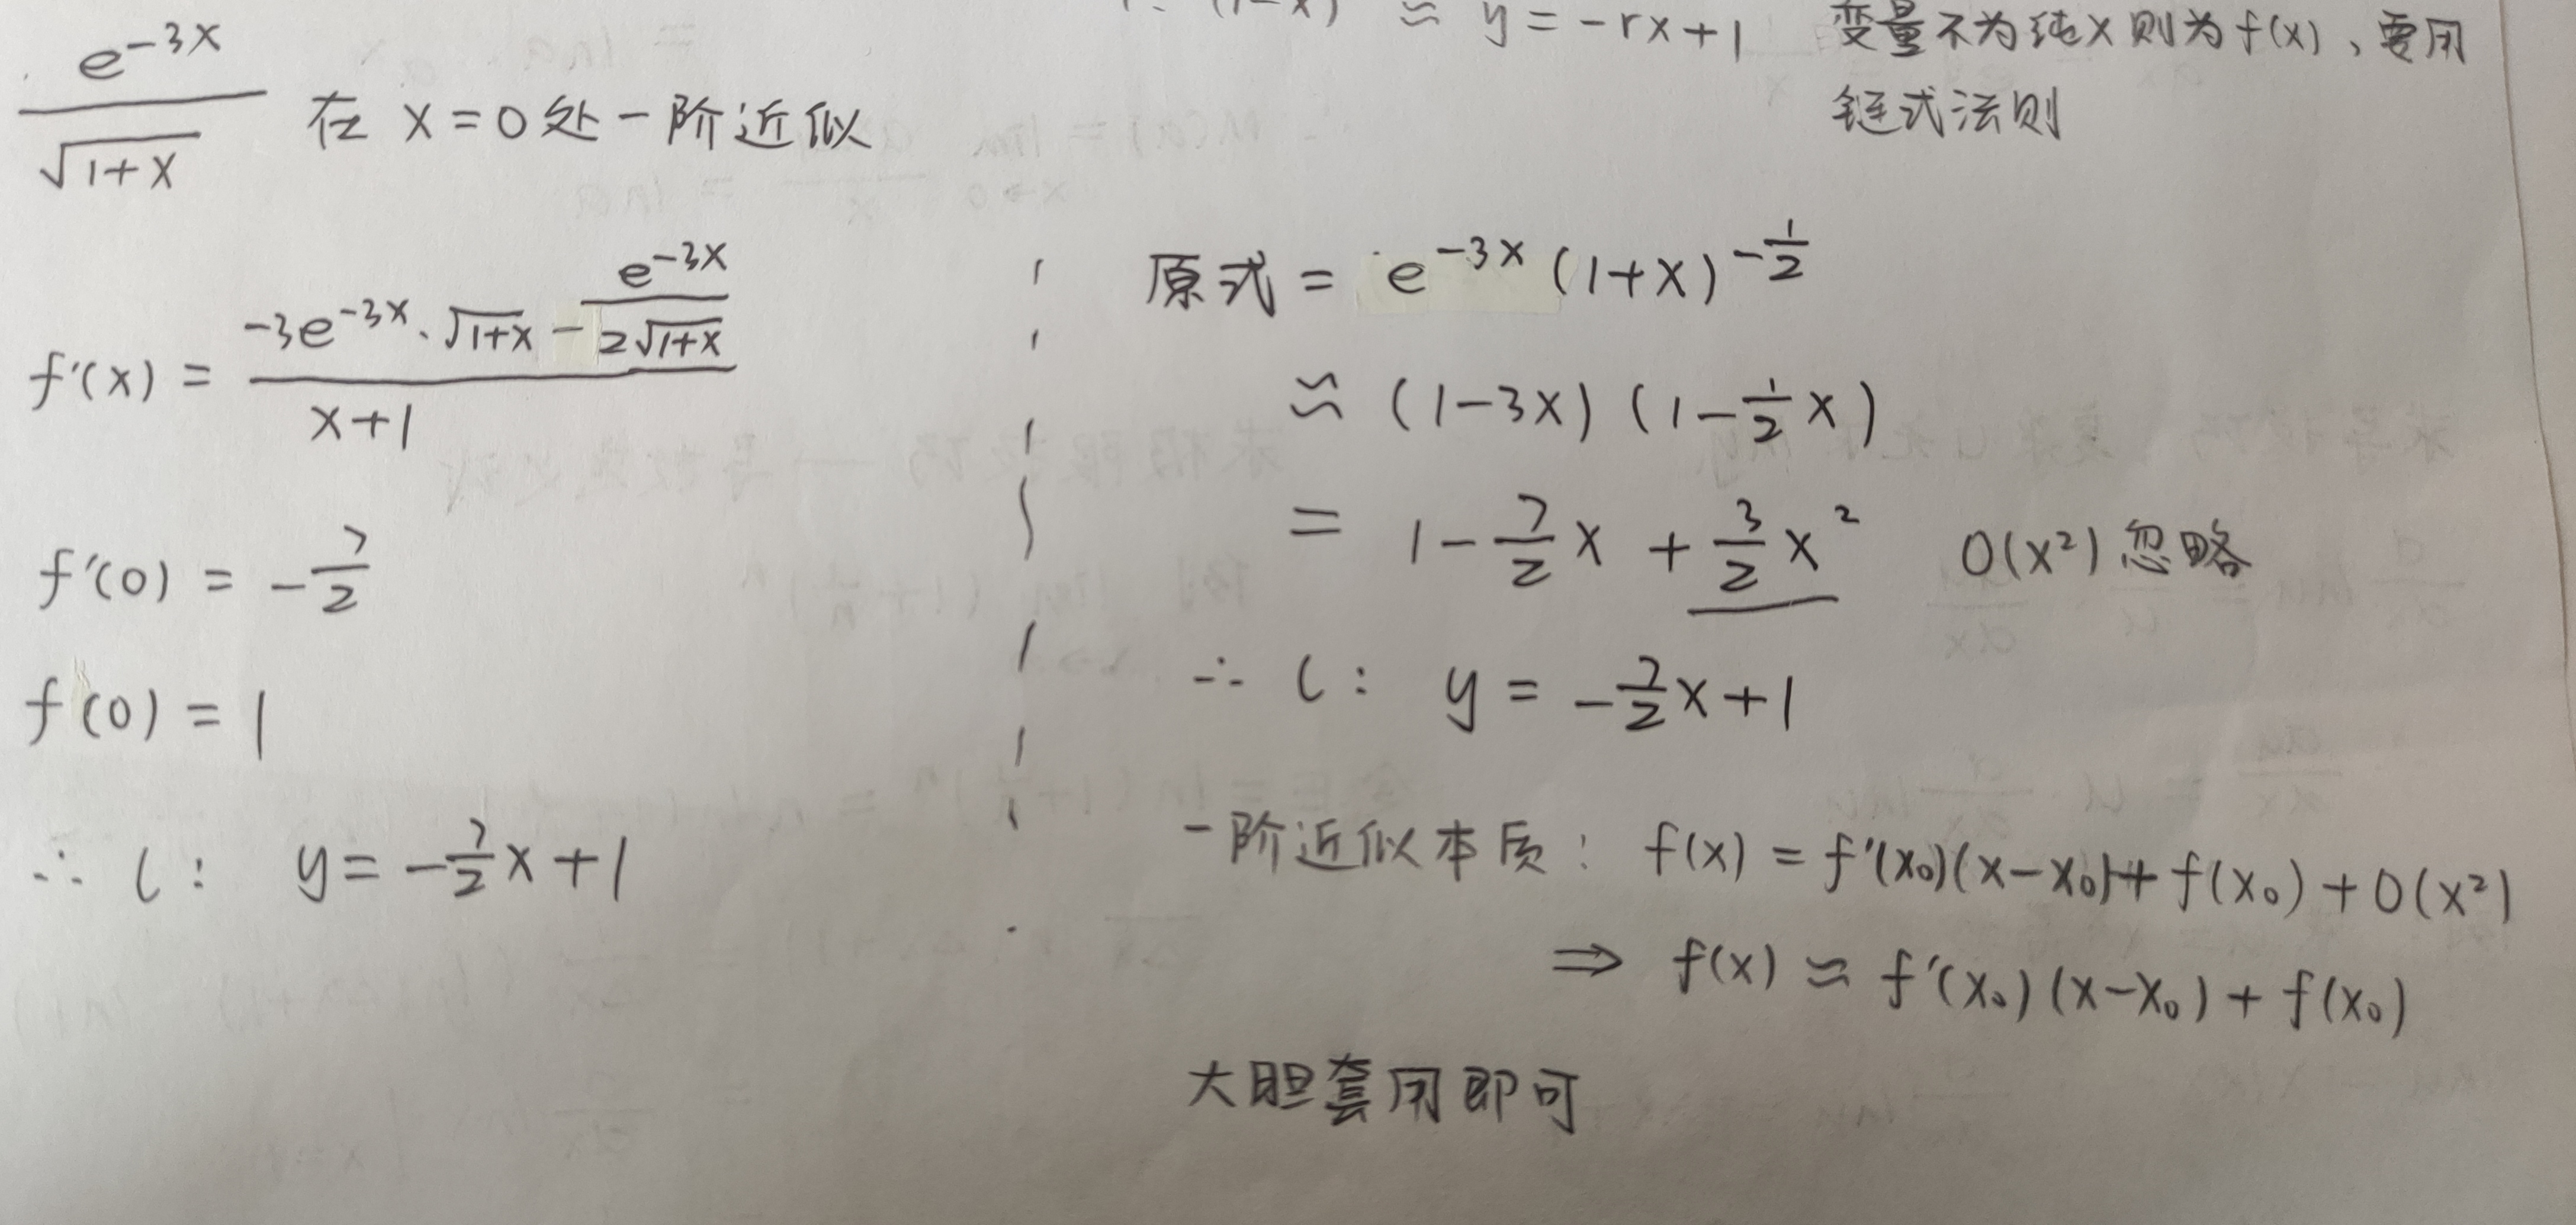 (1-x) ≈ y = -rx+1 变量不为纯x则为f(x)，要用
链式法则
e^{-3x} / √(1+x) 在 x=0处一阶近似
f'(x) = (-3e^{-3x}·√(1+x) - e^{-3x}/(2√(1+x))) / (x+1)
f'(0) = -7/2
f(0) = 1
∴ l: y = -7/2 x + 1
原式 = e^{-3x} (1+x)^{-1/2}
≈ (1-3x) (1-1/2 x)
= 1 - 7/2 x + 3/2 x² O(x²) 忽略
∴ l: y = -7/2 x + 1
一阶近似本质: f(x) = f'(x₀)(x-x₀) + f(x₀) + O(x²)
⇒ f(x) ≈ f'(x₀)(x-x₀) + f(x₀)
大胆套用即可